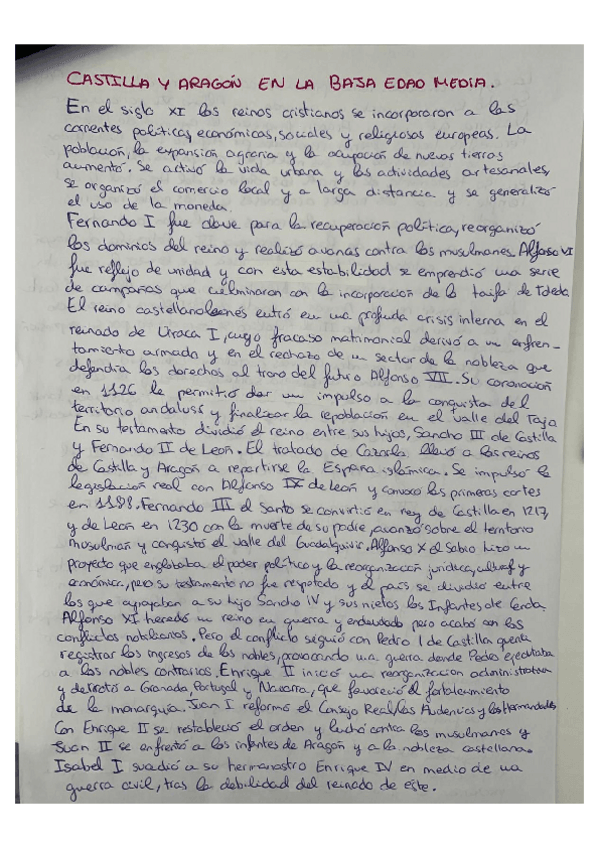 CASTILLA Y ARAGÓN EN LA BAJA EDAD MEDIA.
En el siglo XI los reinos cristianos se incorporaron a las
corrientes políticas, económicas, sociales y religiosas europeas. La
población, la expansión agraria y la ocupación de nuevas tierras
aumentó. Se activó la vida urbana y las actividades artesanales,
se organizó el comercio local y a larga distancia y se generalizó
el uso de la moneda.
Fernando I fue clave para la recuperación política, reorganizó
los dominios del reino y realizó avanas contra los musulmanes. Alfonso VI
fue reflejo de unidad y con esta estabilidad se emprendió una serie
de campañas que culminaron con la incorporación de la taifa de Toledo.
El reino castellanoleonés entró en una profunda crisis interna en el
reinado de Urraca I, cuyo fracaso matrimonial derivó a un enfren-
tamiento armado y en el rechazo de un sector de la nobleza que
defendía los derechos al trono del futuro Alfonso VII. Su coronación
en 1126 le permitió dar un impulso a la conquista del
territorio andalusí y finalizar la repoblación en el valle del Tajo
En su testamento dividió el reino entre sus hijos, Sancho III de Castilla
y Fernando II de León. El tratado de Cazorla llevó a los reinos
de Castilla y Aragón a repartirse la España islámica. Se impulsó la
legislación real con Alfonso IX de León y convocó las primeras cortes
en 1188. Fernando III el Santo se convirtió en rey de Castilla en 1217
y de León en 1230 con la muerte de su padre, avanzó sobre el territorio
musulmán y conquistó el valle del Guadalquivir. Alfonso X el Sabio hizo un
proyecto que englobaba el poder político y la reorganización jurídica, cultural y
económica, pero su testamento no fue respetado y el país se dividió entre
los que apoyaban a su hijo Sancho IV y sus nietos los Infantes de Cerda.
Alfonso XI heredó un reino en guerra y endeudado pero acabó con los
conflictos nobiliarios. Pero el conflicto seguió con Pedro I de Castilla quería
registrar los ingresos de los nobles, provocando una guerra donde Pedro ejecutaba
a los nobles contrarios. Enrique II inició una reorganización administrativa
y derrotó a Granada, Portugal y Navarra, que favoreció el fortalecimiento
de la monarquía. Juan I reformó el Consejo Real, las Audiencias y las Hermandades
Con Enrique II se restableció el orden y luchó contra los musulmanes y
Juan II se enfrentó a los infantes de Aragón y a la nobleza castellana.
Isabel I sucedió a su hermanastro Enrique IV en medio de una
guerra civil, tras la debilidad del reinado de este.